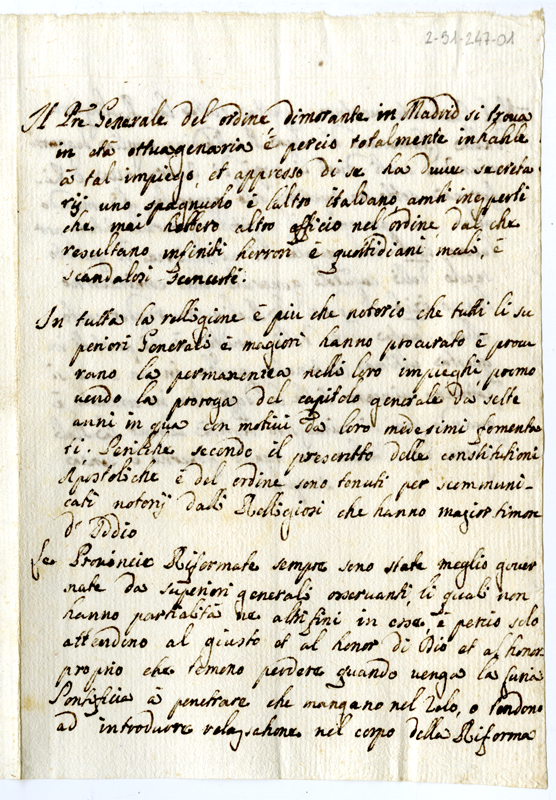 2-51-247-01
Il Pre Generale del ordine dimorante in Madrid si troua
in età ottuagenaria è percio totalmente inhabile
à tal impiego, et appresso di se ha duue secreta
rij uno spagnuolo è l'altro italiano ambi inesperti
che mai hebbero altro officio nel ordine, dal che
resultano infiniti herrori è quottidiani mali, è
scandalosi
In tutta la relligione è piu che notorio che tutti li su
periori Generali è magiori hanno procurato è procu
rano la permanenza nelli loro impieghi promo
uendo la proroga del capitolo generale da sette
anni in qua con motiui da loro medesimi fomenta
ti. Perilche secondo il prescritto delle constitutioni
Apostoliche è del ordine sono tenuti per scommuni-
cati notorij dalli Relligiosi che hanno magior timor
d' Iddio
Le Prouincie Riformate sempre sono state meglio gouer
nate da superiori generali osseruanti, li quali non
hanno partialità ne altri fini in esse, è percio solo
attendono al giusto et al honor di Dio et al honor
proprio che temeno perdere quando uenga la Curia
Pontificia à penetrare che mangano nel Zelo, o tendono
ad introdurre relaschone nel corpo della Riforma